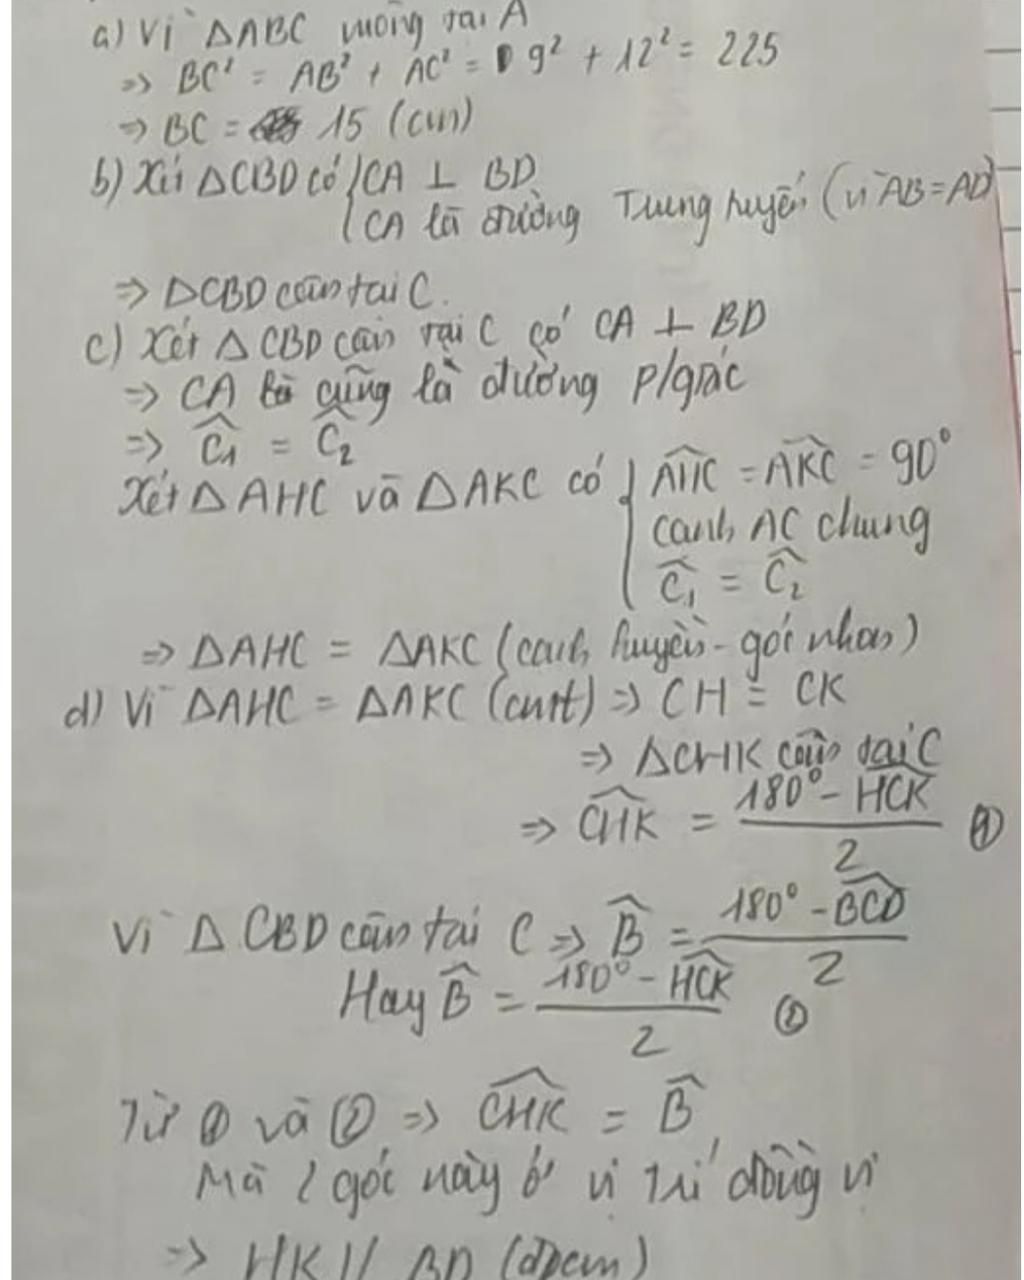 a) Vì ΔABC vuông tại A
=> BC² = AB² + AC² = 9² + 12² = 225
=> BC = 15 (cm)
b) Xét ΔCBD có { CA ⊥ BD
CA là đường Trung tuyến (vì AB = AD)
=> ΔCBD cân tại C.
c) Xét Δ CBD cân tại C có CA ⊥ BD
=> CA cũng là đường p/giác
=> Ĉ₁ = Ĉ₂
Xét ΔAHC và ΔAKC có { \widehat{AHC} = \widehat{AKC} = 90°
cạnh AC chung
Ĉ₁ = Ĉ₂
=> ΔAHC = ΔAKC (cạnh huyền - góc nhọn)
d) Vì ΔAHC = ΔAKC (cmt) => CH = CK
=> ΔCHK cân tại C
=> \widehat{CHK} = \frac{180° - \widehat{HCK}}{2} ①
Vì Δ CBD cân tại C => \widehat{B} = \frac{180° - \widehat{BCD}}{2}
Hay \widehat{B} = \frac{180° - \widehat{HCK}}{2} ②
Từ ① và ② => \widehat{CHK} = \widehat{B}
Mà 2 góc này ở vị trí đồng vị
=> HK // BD (đpcm)